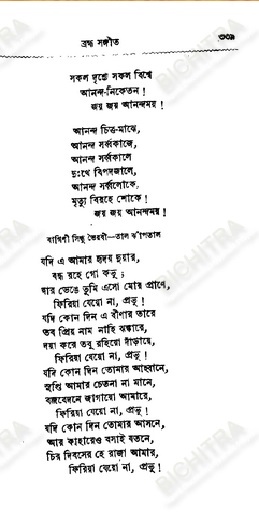 ব্রহ্ম সঙ্গীত ৩৩৯
সকল দৃশ্যে সকল বিশ্বে
আনন্দ-নিকেতন !
জয় জয় আনন্দময় !
আনন্দ চিত্ত-মাঝে,
আনন্দ সর্ব্বকাজে,
আনন্দ সর্ব্বকালে
দুঃখে বিপদজালে,
আনন্দ সর্ব্বলোকে,
মৃত্যু বিরহে শোকে !
জয় জয় আনন্দময় !
রাগিণী সিন্ধু ভৈরবী—তাল ঝাঁপতাল
যদি এ আমার হৃদয় দুয়ার,
বন্ধ রহে গো কভু ;
দ্বার ভেঙে তুমি এসো মোর প্রাণে,
ফিরিয়া যেয়ো না, প্রভু !
যদি কোন দিন এ বীণার তারে
তব প্রিয় নাম নাহি ঝঙ্কারে,
দয়া করে তবু রহিয়ো দাঁড়ায়ে,
ফিরিয়া যেয়ো না, প্রভু !
যদি কোন দিন তোমার আহ্বানে,
সুপ্তি আমার চেতনা না মানে,
বজ্রবেদনে জাগায়ো আমারে,
ফিরিয়া যেয়ো না, প্রভু !
যদি কোন দিন তোমার আসনে,
আর কাহারেও বসাই যতনে,
চির দিবসের হে রাজা আমার,
ফিরিয়া যেয়ো না, প্রভু !
BICHITRA